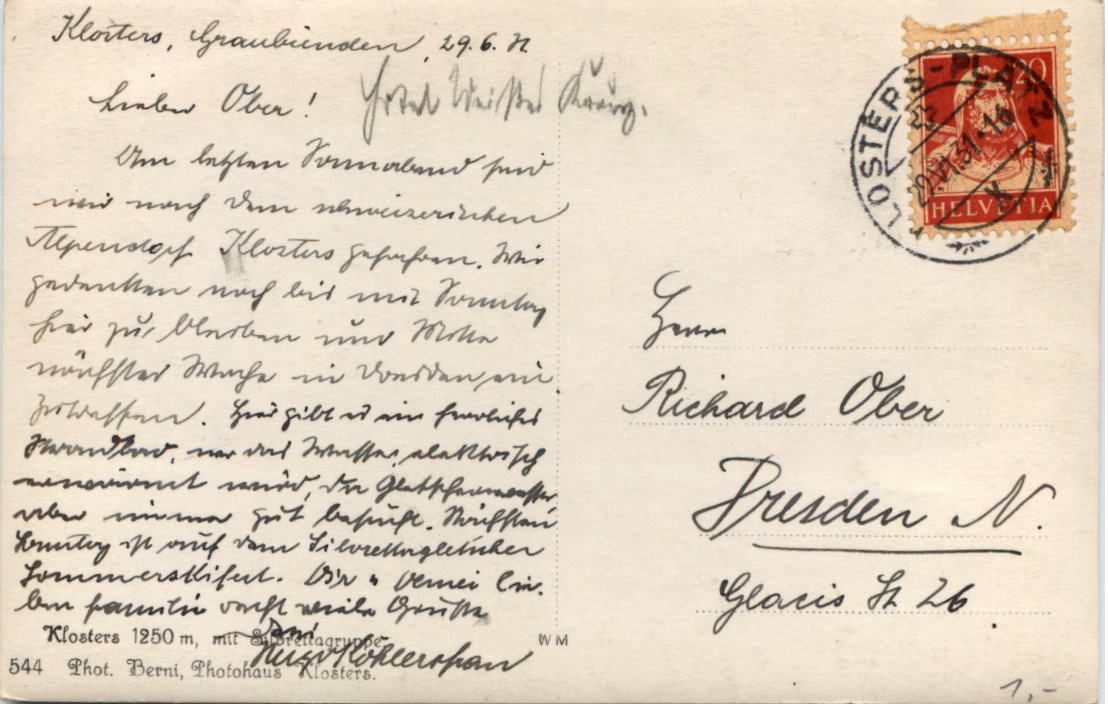 Klosters, Graubünden, 29.6.31
Lieber Ober!
Hotel Weißes Kreuz.
Am letzten Sonnabend sind
wir nach dem schweizerischen
Alpendorf Klosters gefahren. Wir
gedenken noch bis mit Sonntag
hier zu bleiben und Mitte
nächster Woche in Dresden ein
zutreffen. Hier gibt es ein herrliches
Strandbad, wo das Wasser elektrisch
erwärmt wird, da Gletscherwasser
aber immer gut besucht. Nächsten
Sonntag ist auf dem Silvrettagletscher
Sommerskifest. Dir u Deiner lie-
ben Familie recht viele Grüße
Dein
Köhler
Klosters 1250 m, mit Silvrettagruppe
544 Phot. Berni, Photohaus Klosters.
WM
KLOSTERS-PLATZ
VI.31.16
20
HELVETIA
Herrn
Richard Ober
Dresden N.
Glacis St 26
1,-